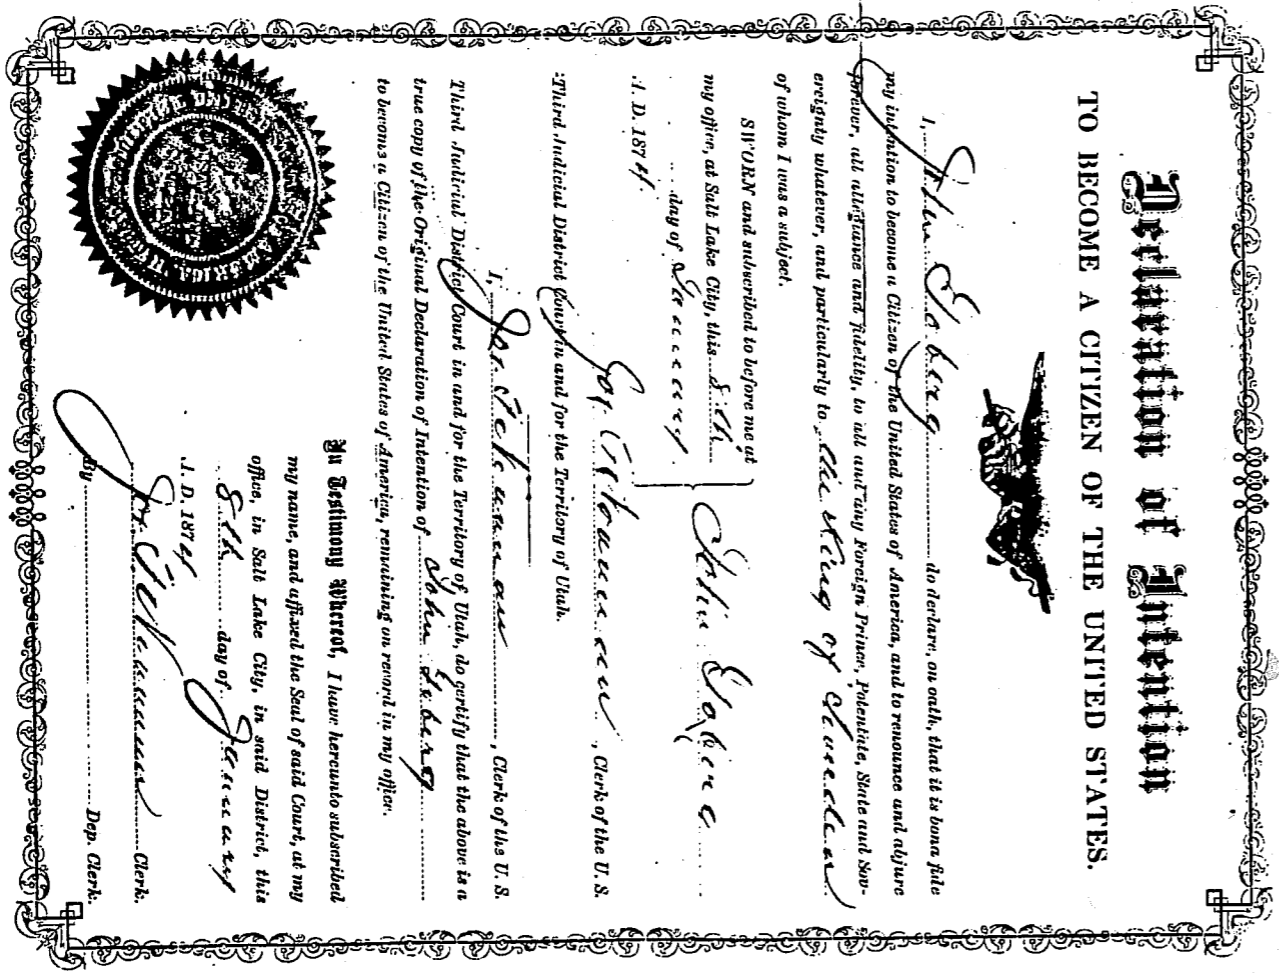 Declaration of Intention
TO BECOME A CITIZEN OF THE UNITED STATES.
I, John Yoberg do declare, on oath, that it is bona fide
my intention to become a Citizen of the United States of America, and to renounce and abjure
forever, all allegiance and fidelity, to all and any Foreign Prince, Potentate, State and Sov-
ereignty whatever, and particularly to the King of Sweden
of whom I was a subject.
SWORN and subscribed to before me at
my office, at Salt Lake City, this 8th
day of January
A. D. 1874.
John
Clerk of the U. S.
Third Judicial District Court in and for the Territory of Utah.
I, , Clerk of the U. S.
Third Judicial District Court in and for the Territory of Utah, do certify that the above is a
true copy of the Original Declaration of Intention of John Yoberg
to become a Citizen of the United States of America, remaining on record in my office.
In Testimony Whereof, I have hereunto subscribed
my name, and affixed the Seal of said Court, at my
office, in Salt Lake City, in said District, this
8th day of January
A. D. 1874
Clerk.
By Dep. Clerk.